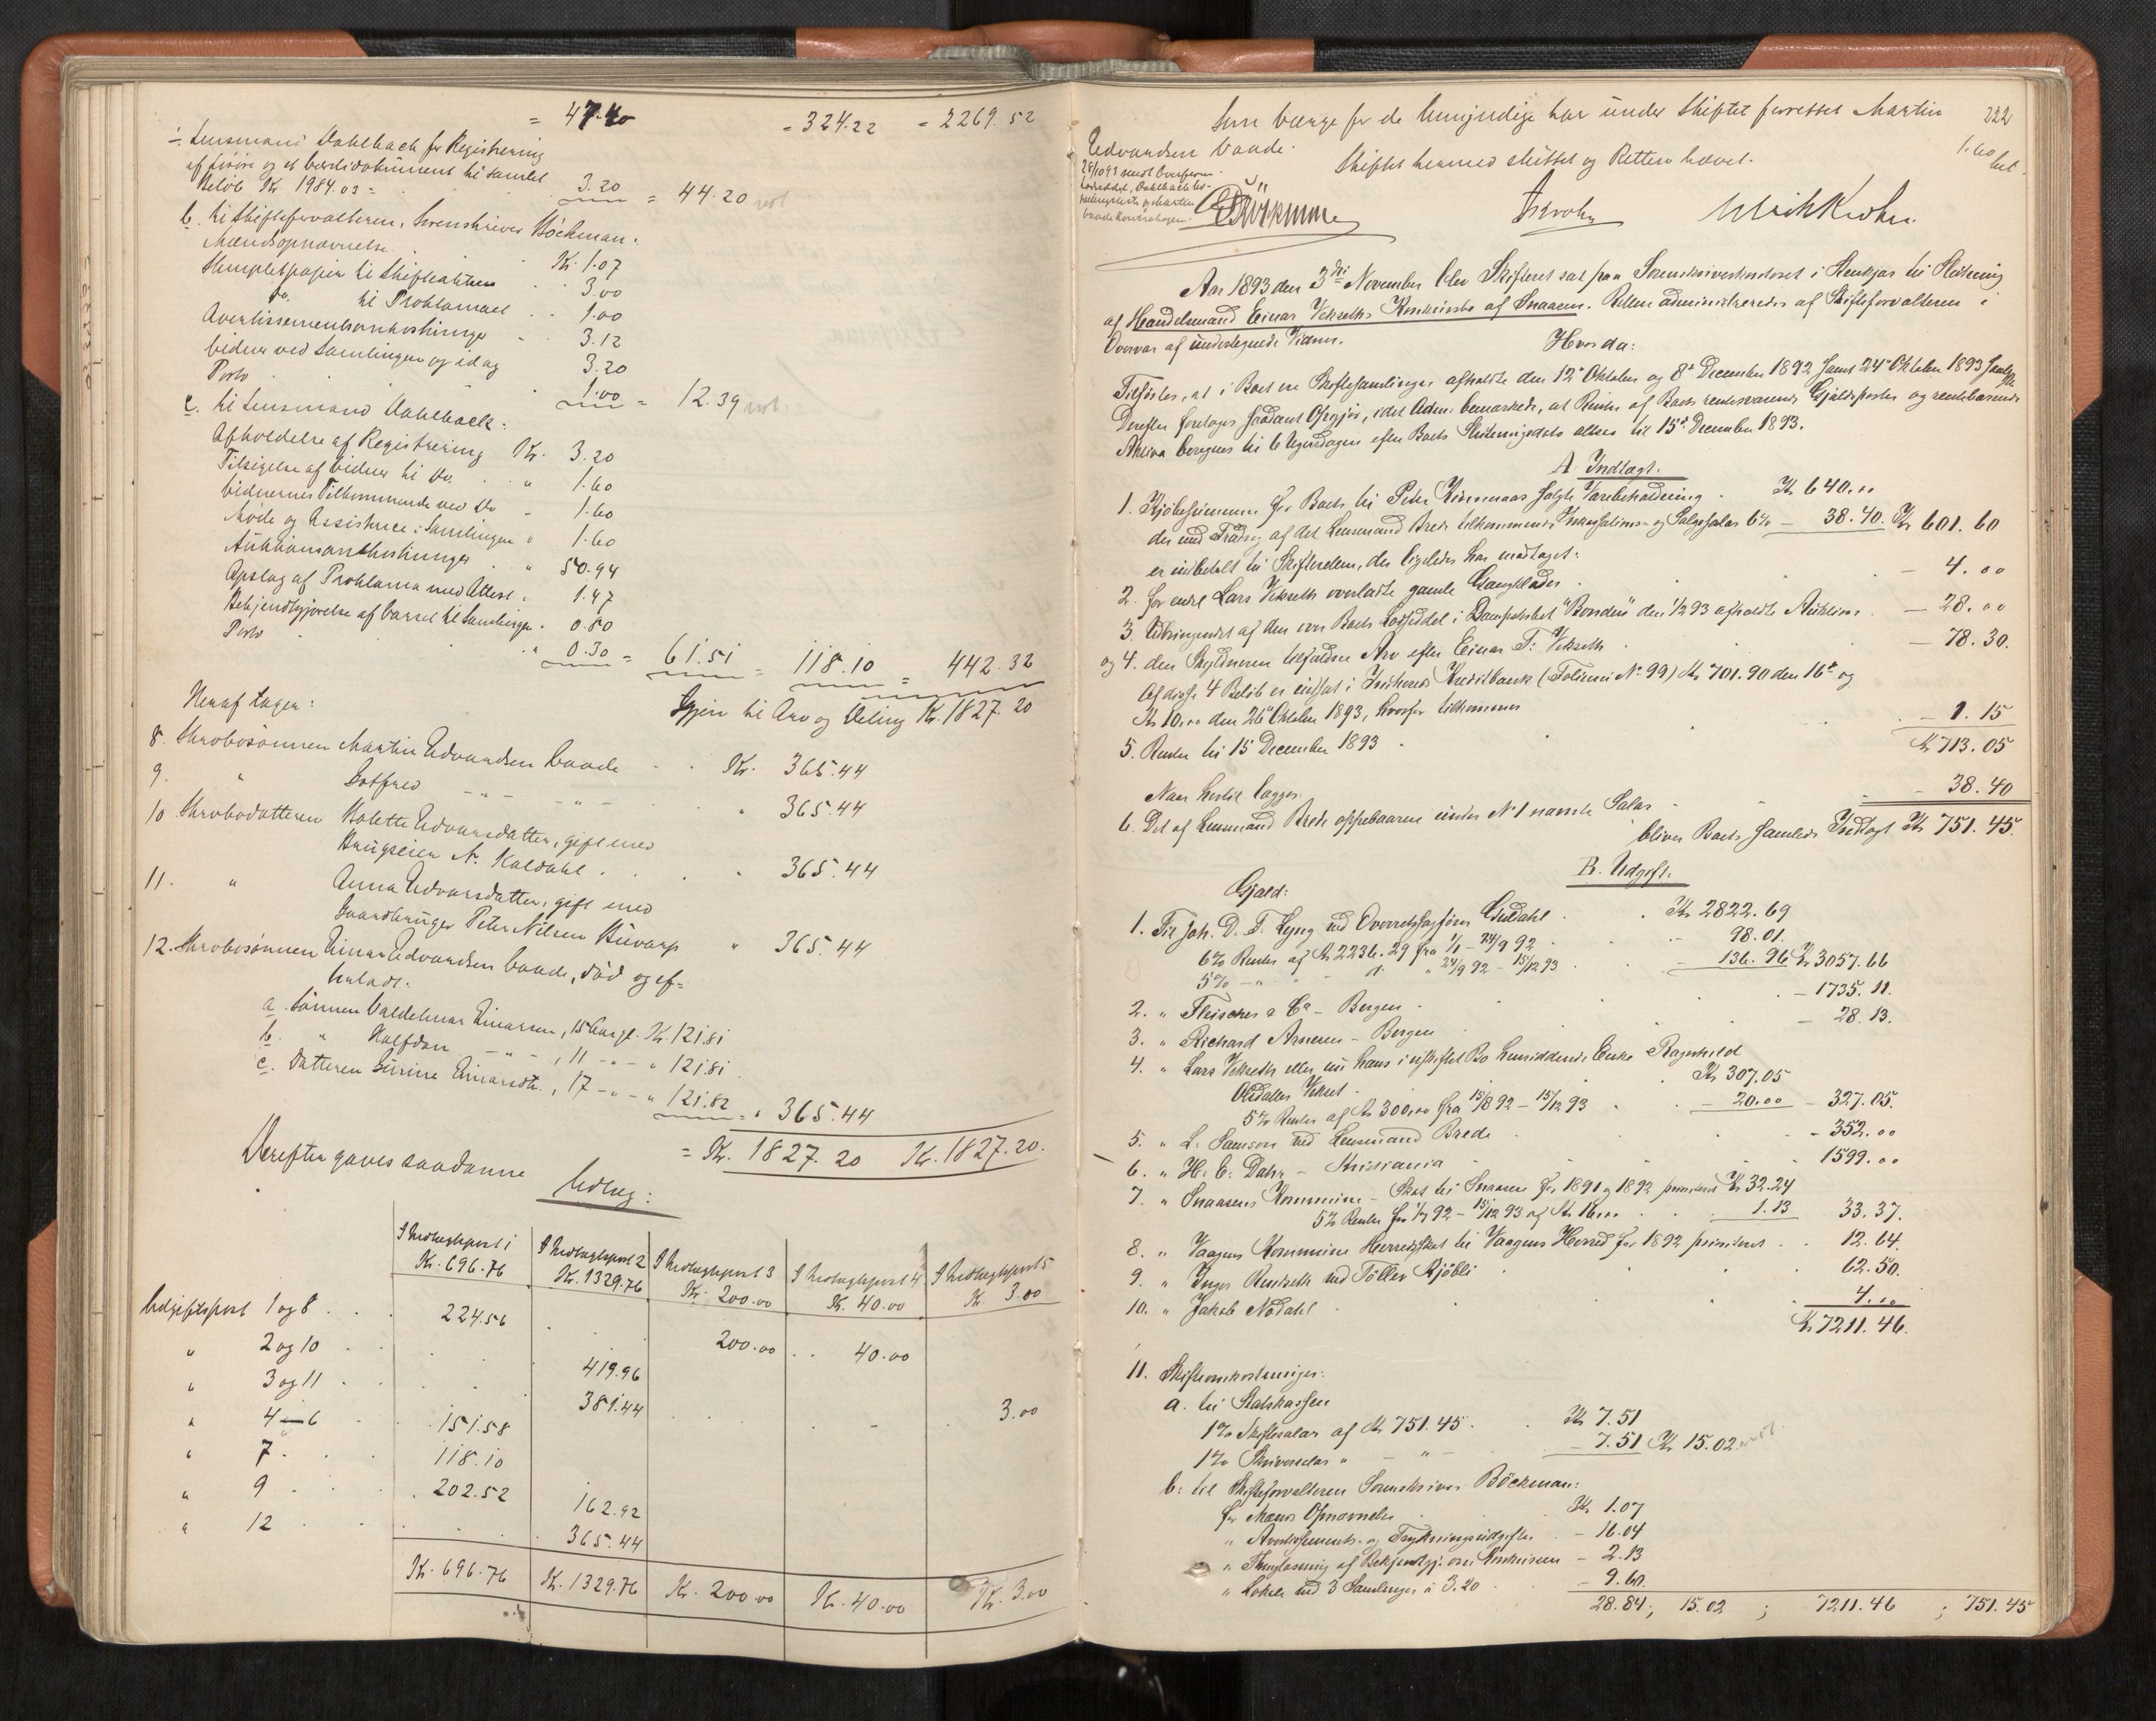 = 47.40 = 324.22 = 2269.52
÷ Lensmand Dahlback for Registrering
af Løsøre og et Værdidokument til samlet
Beløb Kr 1984.02 = 3.20 = 44.20
b. til Skifteforvalteren, Sorenskriver Böckman:
Mændsopnævnelse Kr. 1.07
Stempletpapir til Skifteakten 3.00
do. til Proklamaet 1.00
Avertissementsomkostninger 3.12
Vidner ved Samlingen og idag 3.20
Porto 1.00 = 12.39
c. til Lensmand Dahlback:
Afholdelse af Registrering Kr. 3.20
Tilsigelse af Vidner til do. " 1.60
Vidnernes Tilkommende ved do " 1.60
Møde og Assistence i Samlingen " 1.60
Auktionsomkostninger " 50.94
Opslag af Proklama med Attest " 1.47
Bekjendtgjørelse af Varsel til Samlingen " 0.80
Porto " 0.30 = 61.51 = 118.10 = 442.32
Igjen til Arv og Deling Kr. 1827.20
Heraf tager:
8. Skrobosønnen Martin Edvardsen Vaade Kr. 365.44
9. " Gotfred -"- -"- " 365.44
10. Skrobodatteren Kolette Edvardsdatter, gift med
Brugseier N. Kaldahl " 365.44
11. " Anna Edvardsdatter, gift med
Gaardbruger Peter Nilsen Stuvarp " 365.44
12. Skrobosønnen Einar Edvardsen Vaade, død og ef-
terladt:
a. Sønnen Valdemar Einarsen, 15 Aar gl. Kr. 121.81
b. " Halfdan -"- , 11 -"- " 121.81
c. Datteren Sirine Einarsdtr., 17 -"- " 121.82 = " 365.44
= Kr. 1827.20 Kr. 1827.20.
Derefter gaves saadanne
Udlæg:
I Indtægtspost 1 Kr. 696.76 I Indtægtspost 2 Kr. 1329.76 I Indtægtspost 3 Kr. 200.00 I Indtægtspost 4 Kr. 40.00 I Indtægtspost 5 Kr. 3.00
Udgiftspost 1 og 8 224.56 200.00 40.00
" 2 og 10 419.96
" 3 og 11 381.44 3.00
" 4–6 151.58
" 7 118.10
" 9 202.52 162.92
" 12 365.44
Kr. 696.76 Kr. 1329.76 Kr. 200.00 Kr. 40.00 Kr. 3.00
222
Som Værge for de Umyndige har under Skiftet forrettet Martin
Edvardsen Vaade.
1.60
bet.
Skiftet hermed sluttet og Retten hævet.
Böckman
Ulrik Krohn.
Aar 1893 den 3die November blev Skifteret sat paa Sorenskriverkontoret i Stenkjær til Slutning
af Handelsmand Einar Vekseths Konkursbo af Snaasen. Retten administreredes af Skifteforvalteren i
Overvær af undertegnede Vidner.
Hvorda:
Tilførtes, at i Boet ere Skiftesamlinger afholdte den 12te Oktober og 8de December 1892 samt 24de Oktober 1893
Derefter foretages saadant Opgjør, idet Adm. bemærkede, at Renter af Boets rentesvarende Gjældsposter og rentebærende
Aktiva beregnes til 6 Ugersdagen efter Boets Slutningsdato altsaa til 15de December 1893.
A Indtægt.
1. Kjøbesummen for Boets til Peter Kinsmaas solgte Varebeholdning Kr 640.00
der med Fradrag af det Lensmand Brede tilkommende Inkassations- og Salgssalær 6% – 38.40. Kr 601.60
er indbetalt til Skifteretten, der ligeledes har modtaget:
2. for endel Lars Vekseth overladte gamle Gangklæder – 4.00
3. Udbringendet af den over Boets Lodseddel i Dampskibet "Bonden" den 1/2 93 afholdte Auktion – 28.00
og 4. den Skyldneren tilfaldne Arv efter Einar T. Vekseth – 78.30.
Af disse 4 Beløb er indsat i Inherreds Kreditbank (Folium No 99) Kr 701.90 den 16de og
Kr 10.00 den 26de Oktober 1893, hvorfor tilkommer
5. Renter til 15 December 1893 – 1.15
Kr 713.05
Naar hertil lægges
6. Det af Lensmand Brede oppebaarne under No 1 nævnte Salær – 38.40
bliver Boets samlede Indtægt Kr 751.45.
B. Udgift.
Gjæld:
1. Til Joh. D. F. Lyng ved Overretssagfører Guldahl Kr 2822.69
6% Renter af Kr 2236.29 fra 1/1 – 24/9 92 98.01.
5% -"- " 24/9 92 – 15/12 93 – 136.96 Kr 3057.66
2. " Fleischer & Co – Bergen – 1735.11.
3. " Richard Arnesen – Bergen – 28.13.
4. " Lars Vekseth eller nu hans i uskiftet Bo hensiddende Enke Ragnhild
Olsdatter Vekset Kr 307.05
5% Renter af Kr 300.00 fra 15/8 92 – 15/12 93 – 20.00 – 327.05.
5. " L. Samson ved Lensmand Brede – 352.00
6. " H. C. Dahr – Kristiania 1599.00
7. " Snaasens Kommune – Skat til Snaasen for 1891 og 1892 prioriteret Kr 32.24
5% Renter fra 1/7 92 – 15/12 93 af Kr 16.00 1.13 33.37.
8. " Vaagens Kommune Herredsskat til Vaagens Herred for 1892 prioriteret 12.64.
9. " Inger Renseth ved Tollev Kjöbli 62.50.
10. " Jakob Nödahl 4.00
Kr 7211.46.
11. Skifteomkostninger:
a. til Statskassen
1% Skiftesalær af Kr 751.45 Kr 7.51
1% Skriversalær " – " – – 7.51 Kr 15.02
b: til Skifteforvalteren Sorenskriver Böckman:
for Mænds Opnævnelse Kr 1.07
" Avertissements- og Trykningsudgifter – 16.04
" Thinglæsning af Bekjendtgj. om Konkursen – 2.13
" Lokale ved 3 Samlinger à 3.20 – 9.60.
28.84; 15.02 ; 7211.46 ; 751.45